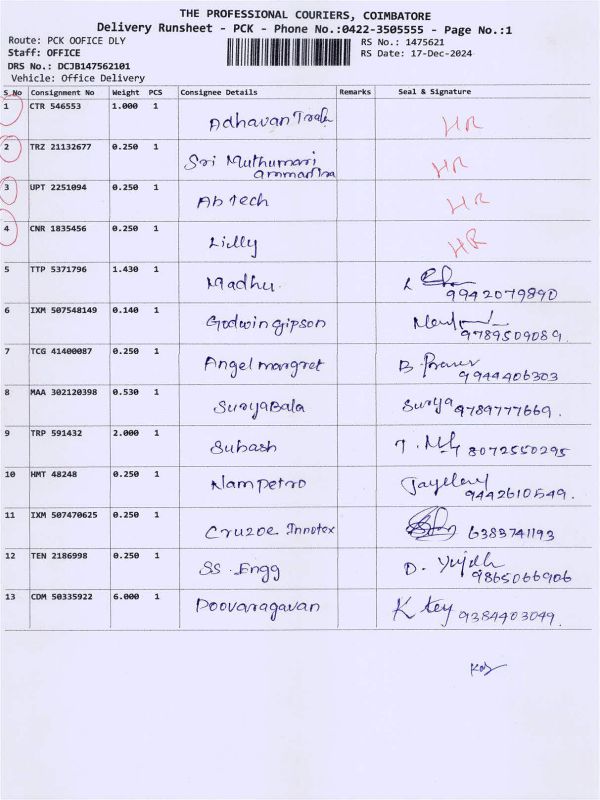 THE PROFESSIONAL COURIERS, COIMBATORE
Delivery Runsheet - PCK - Phone No.:0422-3505555 - Page No.:1
Route: PCK OOFICE DLY RS No.: 1475621
Staff: OFFICE RS Date: 17-Dec-2024
DRS No.: DCJB147562101
Vehicle: Office Delivery
S No Consignment No Weight PCS Consignee Details Remarks Seal & Signature
1 CTR 546553 1.000 1 Adhavan HR
2 TRZ 21132677 0.250 1 Sri Muthumari HR
3 UPT 2251094 0.250 1 Ab Tech HR
4 CNR 1835456 0.250 1 Lilly HR
5 TTP 5371796 1.430 1 Madhu.
9942079890
6 IXM 507548149 0.140 1 Godwin gipson
9789509089.
7 TCG 41400087 0.250 1 Angel margret B
9944406303
8 MAA 302120398 0.530 1 SuryaBala Surya 9789777669.
9 TRP 591432 2.000 1 Subash T. 8072550295
10 HMT 48248 0.250 1 Nampetro
9442610549.
11 IXM 507470625 0.250 1 Cruzoe Innotex 6383741193
12 TEN 2186998 0.250 1 SS Engg D.
9865066906
13 CDM 50335922 6.000 1 Poovaragavan K 9384403049.